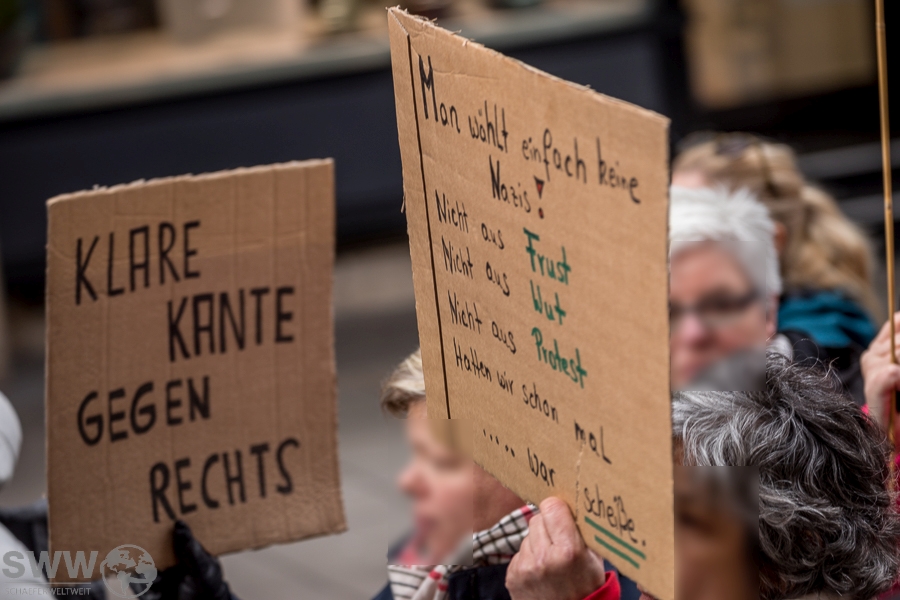 KLARE
KANTE
GEGEN
RECHTS
Man wählt einfach keine
Nazis!
Nicht aus Frust
Nicht aus Wut
Nicht aus Protest
Hatten wir schon mal
..... war scheiße.
SWW
WELTWEIT